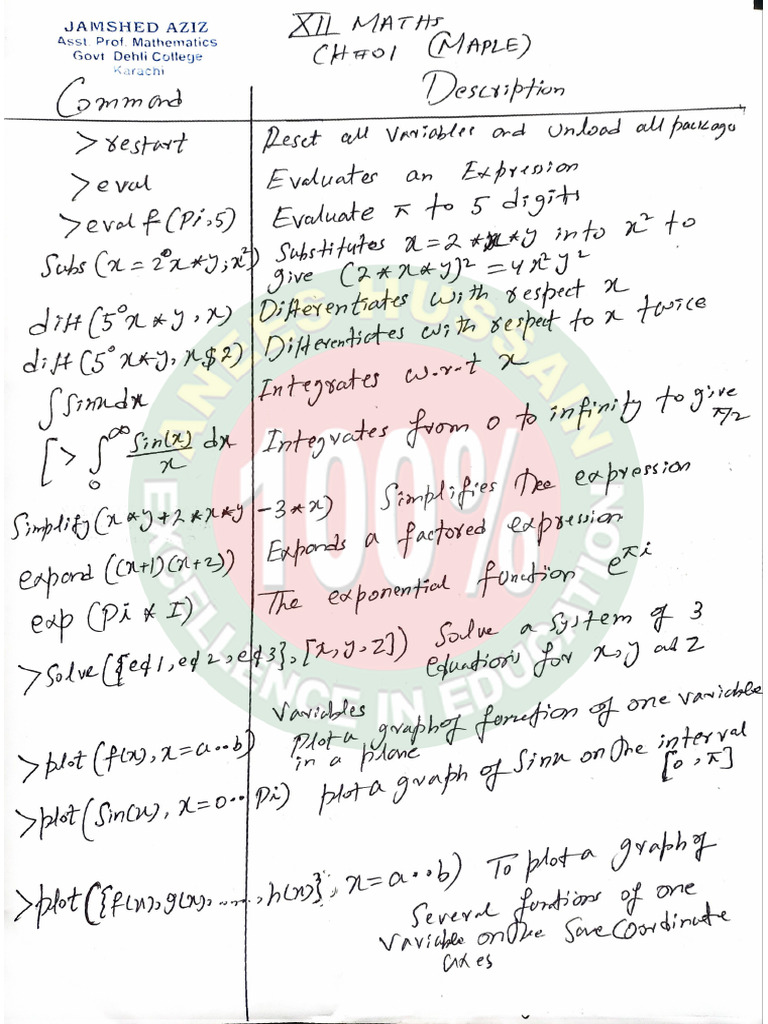 JAMSHED AZIZ
Asst. Prof. Mathematics
Govt Dehli College
Karachi
XII MATHS
CH#01 (MAPLE)
Command Description
>restart Reset all variables and unload all package
>eval Evaluates an Expression
>evalf(Pi,5) Evaluate π to 5 digits
Subs(x=2°x*y;x²) Substitutes x=2*x*y into x² to
give (2*x*y)²=4x²y²
diff(5°x*y,x) Differentiates with respect x
diff(5°x*y,x$2) Differentiates with respect to x twice
∫Sinxdx Integrates w.r.t x
[> ∫₀^∞ Sin(x)/x dx Integrates from 0 to infinity to give π/2
Simplify(x*y+2*x*y-3*x) Simplifies the expression
expand((x+1)(x+2)) Expands a factored expression
exp(Pi*I) The exponential function e^πi
>Solve({eq1,eq2,eq3},[x,y,z]) Solve a system of 3
equations for x,y ad z
Variables
>plot(f(x),x=a..b) Plot a graph of function of one variable
in a plane
>plot(Sin(x),x=0..Pi) plot a graph of Sinx on the interval
[0,π]
>plot({f(x),g(x),.....,h(x)},x=a..b) To plot a graph of
Several functions of one
variable on the Same Coordinate
axes
ANEES HUSSAIN
100%
EXCELLENCE IN EDUCATION